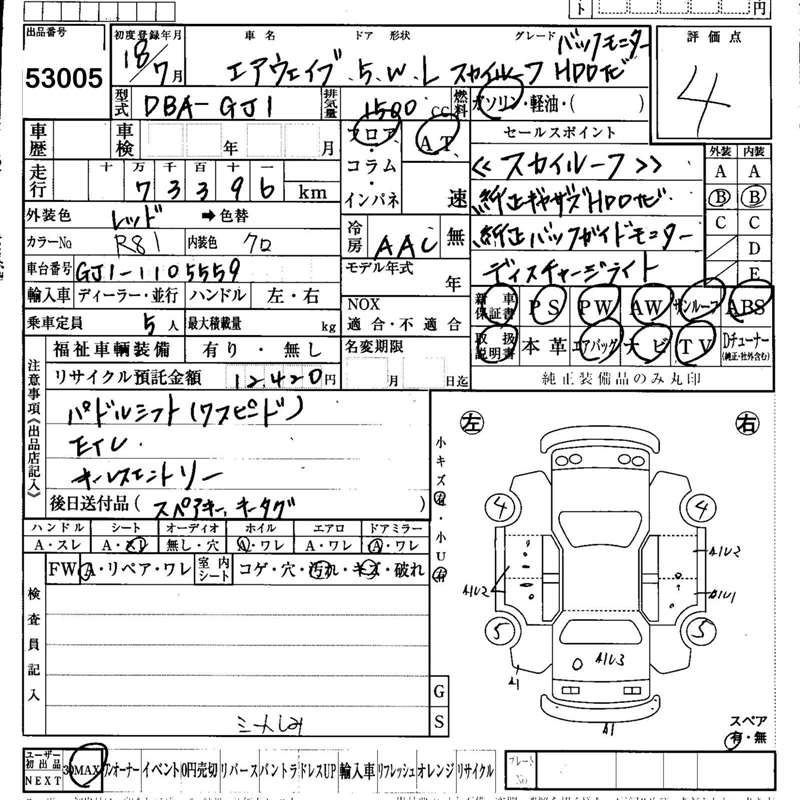 ト 円
出品番号 初度登録年月 車名 ドア 形状 グレード 評価点
53005 18/7月 エアウェイブ 5.W.L スカイルーフ HDDナビ バックモニター 4
型式 DBA-GJ1 排気量 1500 CC 燃料 ガソリン・軽油・( )
車歴 車検 年 月 フロア・コラム・インパネ AT 速 セールスポイント 外装 内装
走行 十 万 千 百 十 一
73396 km
<< スカイルーフ >> A A
純正ギャザズHDDナビ B B
外装色 レッド ➡色替 冷房 AAC 無 純正バックガイドモニター C C
カラーNo R81 内装色 クロ D
車台番号 GJ1-1105559 モデル年式 年 ディスチャージライト E
輸入車 ディーラー・並行 ハンドル 左・右 NOX 適合・不適合 新車保証書 PS PW AW サンルーフ ABS
乗車定員 5人 最大積載量 kg
福祉車輌装備 有り・無し 名変期限 月 日迄 取扱説明書 本革 エアバッグ ナビ TV Dチューナー(純正・社外含む)
リサイクル預託金額 12,420円 純正装備品のみ丸印
注意事項《出品店記入》
パドルシフト(7スピード)
ETC.
キーレスエントリー
後日送付品( スペアキー、キータグ )
左 右
小キズ有・小U有
ハンドル シート オーディオ ホイル エアロ ドアミラー
A・スレ A・スレ 無し・穴 A・ワレ A・ワレ A・ワレ
FW A・リペア・ワレ 室内シート コゲ・穴・汚れ・キズ・破れ
検査員記入
4 4
A1U2
A1U2 A1U1
5 5
A1U3
A1
A1
G
S
シートしみ
スペア
有・無
ユーザー初出品 NEXT 30MAX ワンオーナー イベント 0円売切 リバース バントラ ドレスUP 輸入車 リフレッシュ オレンジ リサイクル